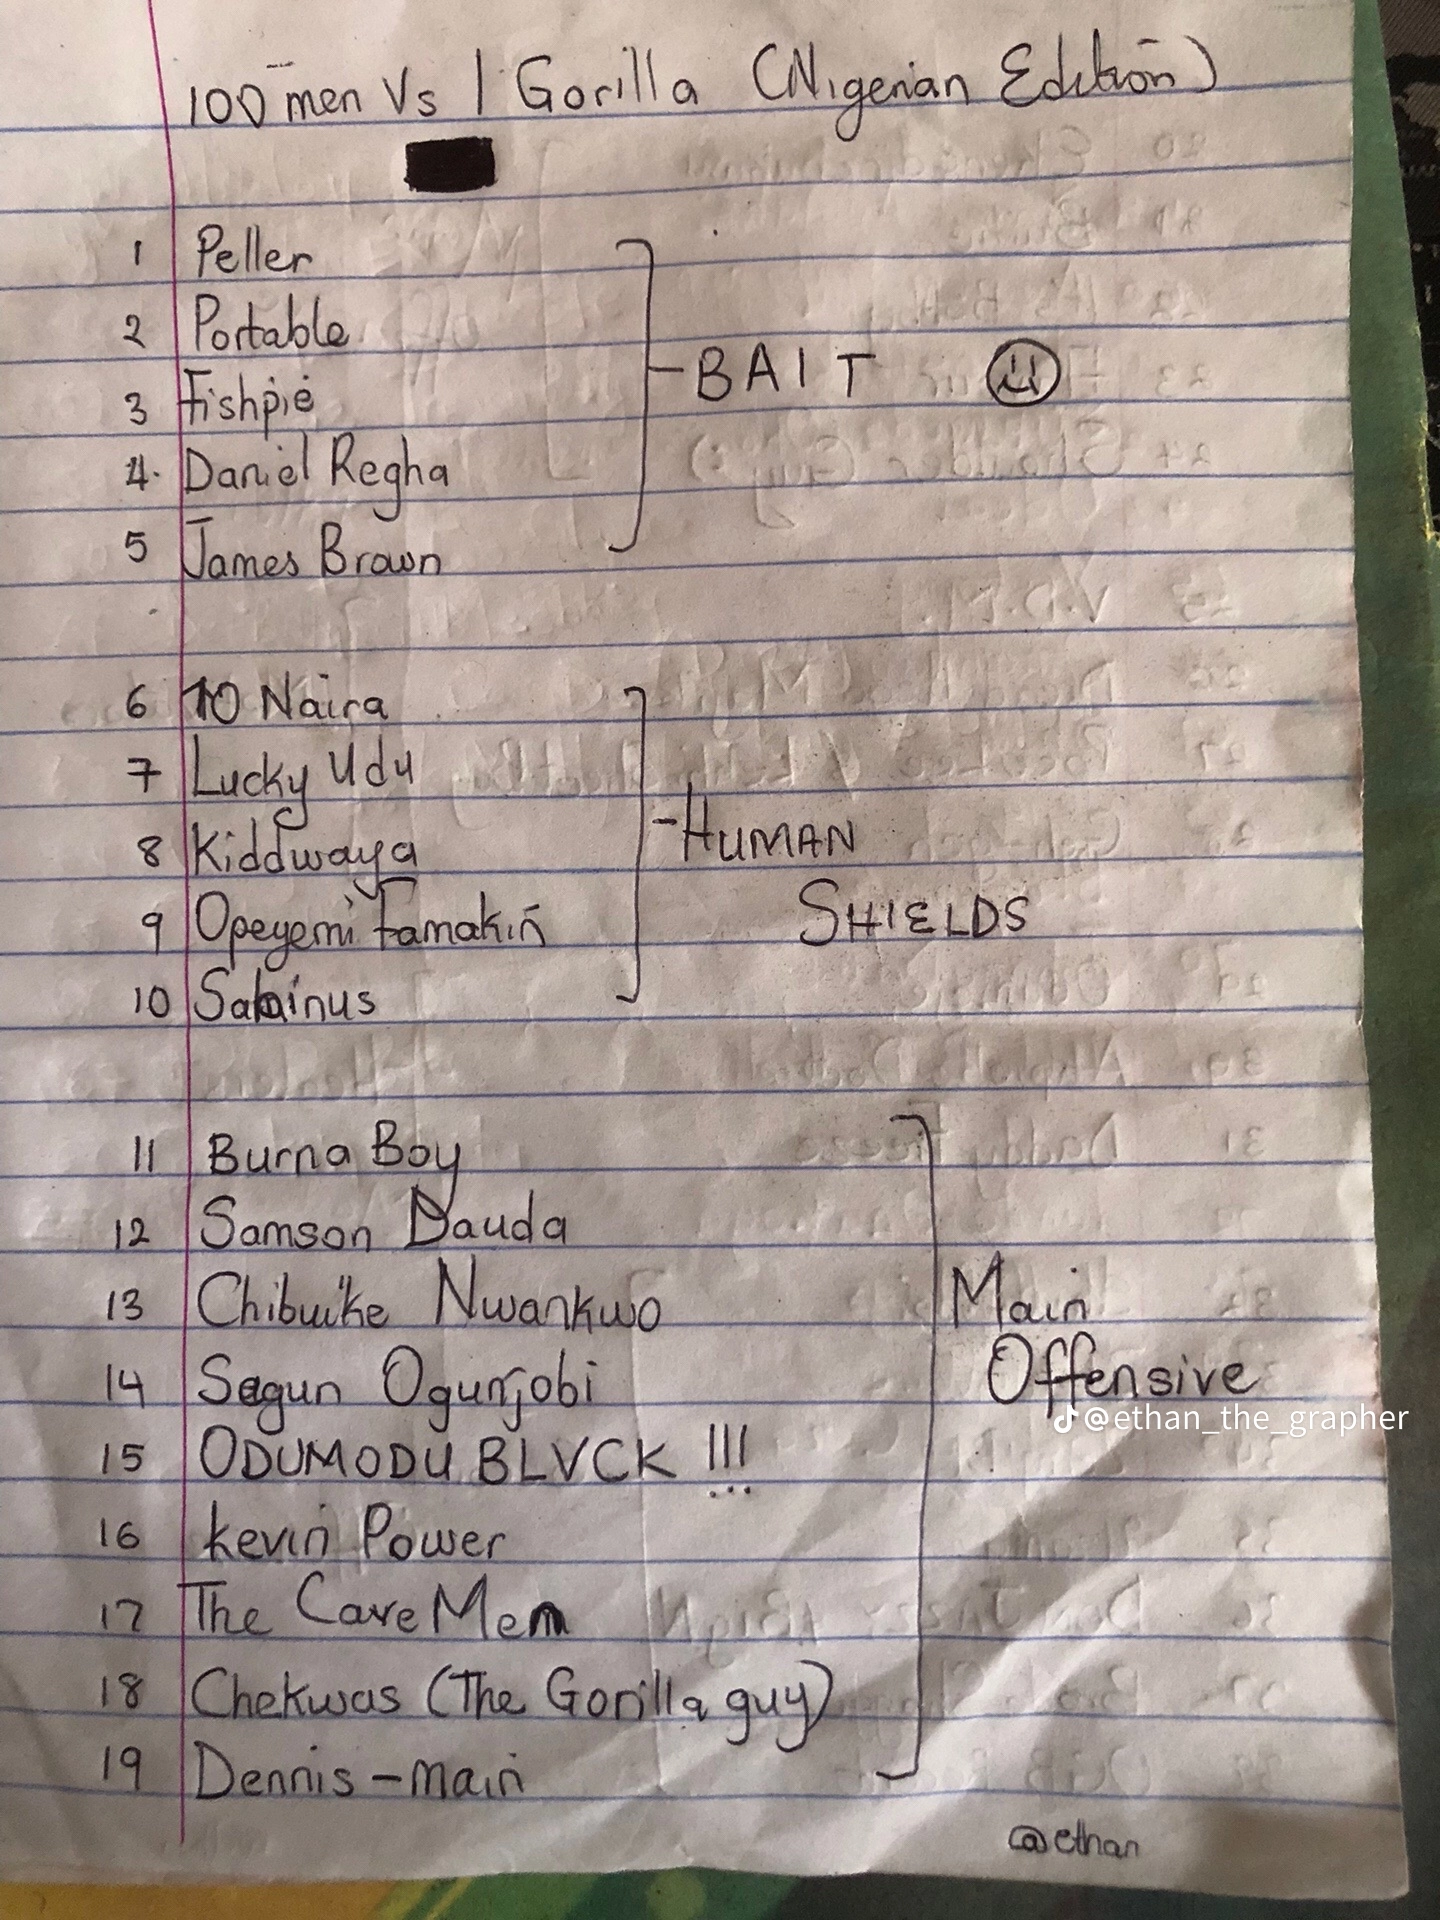 100 men Vs 1 Gorilla (Nigerian Edition)
1 Peller
2 Portable
3 Fishpie
4. Daniel Regha
5 James Brown
BAIT
6 10 Naira
7 Lucky Udu
8 Kiddwaya
9 Opeyemi Famakin
10 Sabinus
- HUMAN
SHIELDS
11 Burna Boy
12 Samson Dauda
13 Chibuike Nwankwo
14 Segun Ogunjobi
15 ODUMODU BLVCK !!!
16 Kevin Power
17 The Cave Men
18 Chekwas (The Gorilla guy)
19 Dennis - main
Main
Offensive
@ethan_the_grapher
@ethan